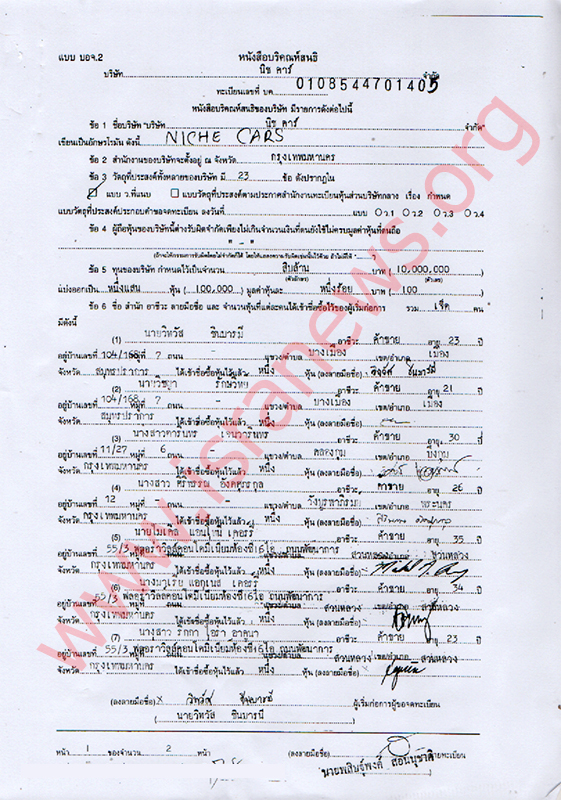 แบบ บอจ.2
หนังสือบริคณห์สนธิ
บริษัท นิช คาร์ จำกัด
ทะเบียนเลขที่ บค. 0108544701405
หนังสือบริคณห์สนธิของบริษัท มีรายการดังต่อไปนี้
ข้อ 1 ชื่อบริษัท "บริษัท นิช คาร์ จำกัด"
เขียนเป็นอักษรโรมัน ดังนี้ NICHE CARS
ข้อ 2 สำนักงานของบริษัทจะตั้งอยู่ ณ จังหวัด กรุงเทพมหานคร
ข้อ 3 วัตถุที่ประสงค์ทั้งหลายของบริษัท มี 23 ข้อ ดังปรากฏใน
แบบ ว.ที่แนบ แบบวัตถุที่ประสงค์ตามประกาศสำนักงานทะเบียนหุ้นส่วนบริษัทกลาง เรื่อง กำหนด
แบบวัตถุที่ประสงค์ประกอบคำขอจดทะเบียน ลงวันที่ แบบ ว.1 ว.2 ว.3 ว.4
ข้อ 4 ผู้ถือหุ้นของบริษัทนี้ต่างรับผิดจำกัดเพียงไม่เกินจำนวนเงินที่ตนยังใช้ไม่ครบมูลค่าหุ้นที่ตนถือ
ข้อ 5 ทุนของบริษัท กำหนดไว้เป็นจำนวน สิบล้าน บาท (10,000,000)
(ตัวอักษร) (ตัวเลข)
แบ่งออกเป็น หนึ่งแสน หุ้น (100,000) มูลค่าหุ้นละ หนึ่งร้อย บาท (100)
ข้อ 6 ชื่อ สำนัก อาชีวะ ลายมือชื่อ และ จำนวนหุ้นที่แต่ละคนได้เข้าชื่อซื้อไว้ของผู้เริ่มก่อการ รวม เจ็ด คน
มีดังนี้
(1) นายวิทวัส ชินบารมี อาชีวะ ค้าขาย อายุ 23 ปี
อยู่บ้านเลขที่ 104/168 หมู่ที่ 7 ถนน - แขวง/ตำบล บางเมือง เขต/อำเภอ เมือง
จังหวัด สมุทรปราการ ได้เข้าชื่อซื้อหุ้นไว้แล้ว หนึ่ง หุ้น (ลงลายมือชื่อ)
(2) นายวิชญา รักษ์วิทย์ อาชีวะ ค้าขาย อายุ 21 ปี
อยู่บ้านเลขที่ 104/168 หมู่ที่ 7 ถนน - แขวง/ตำบล บางเมือง เขต/อำเภอ เมือง
จังหวัด สมุทรปราการ ได้เข้าชื่อซื้อหุ้นไว้แล้ว หนึ่ง หุ้น (ลงลายมือชื่อ)
(3) อาชีวะ ค้าขาย อายุ 30 ปี
อยู่บ้านเลขที่ 11/27 หมู่ที่ 6 ถนน - แขวง/ตำบล คลองกุ่ม เขต/อำเภอ บึงกุ่ม
จังหวัด กรุงเทพมหานคร ได้เข้าชื่อซื้อหุ้นไว้แล้ว หนึ่ง หุ้น (ลงลายมือชื่อ)
(4) นางสาว อาชีวะ ค้าขาย อายุ 26 ปี
อยู่บ้านเลขที่ 12 หมู่ที่ - ถนน - แขวง/ตำบล วังบูรพาภิรมย์ เขต/อำเภอ พระนคร
จังหวัด กรุงเทพมหานคร ได้เข้าชื่อซื้อหุ้นไว้แล้ว หนึ่ง หุ้น (ลงลายมือชื่อ)
(5) นายไมเคิล แอนโทนี่ เคอร์รี่ อาชีวะ ค้าขาย อายุ 35 ปี
อยู่บ้านเลขที่ 55/3 ฟลอร่าวิลล์คอนโดมิเนียมห้องซี16ไอ ถนนพัฒนาการ สวนหลวง สวนหลวง
จังหวัด กรุงเทพมหานคร ได้เข้าชื่อซื้อหุ้นไว้แล้ว หนึ่ง หุ้น (ลงลายมือชื่อ)
(6) นางมาเรีย แอกเนส เคอร์รี่ อาชีวะ ค้าขาย อายุ 34 ปี
อยู่บ้านเลขที่ 55/3 ฟลอร่าวิลล์คอนโดมิเนียมห้องซี16ไอ ถนนพัฒนาการ สวนหลวง สวนหลวง
จังหวัด กรุงเทพมหานคร ได้เข้าชื่อซื้อหุ้นไว้แล้ว หนึ่ง หุ้น (ลงลายมือชื่อ)
(7) นางสาว อาชีวะ ค้าขาย อายุ 23 ปี
อยู่บ้านเลขที่ 55/3 ฟลอร่าวิลล์คอนโดมิเนียมห้องซี16ไอ ถนนพัฒนาการ สวนหลวง เขต/อำเภอ สวนหลวง
จังหวัด กรุงเทพมหานคร ได้เข้าชื่อซื้อหุ้นไว้แล้ว หนึ่ง หุ้น (ลงลายมือชื่อ)
(ลงลายมือชื่อ) x วิทวัส ชินบารมี ผู้เริ่มก่อการผู้ขอจดทะเบียน
(นายวิทวัส ชินบารมี)
หน้า 1 ของจำนวน 2 หน้า (ลงลายมือชื่อ) นายทะเบียน
www.isranews.org